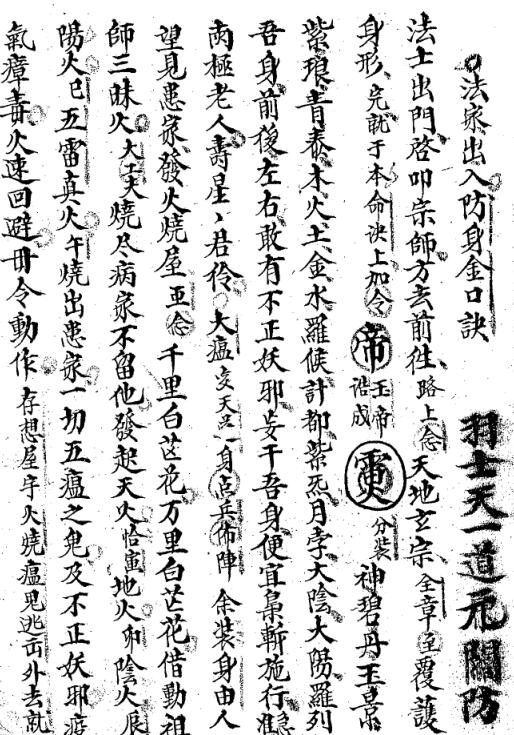 法家出入防身金口訣
羽士天一道元關防
法士出門啓叩宗師方去前往路上念天地玄宗全章至覆護
身形完就于本命訣上加令帝玉帝誥成分裝神碧丹玉
紫琅青泰木火土金水羅候計都紫炁月孛大陰大陽羅列
吾身前後左右敢有不正妖邪妄干吾身便宜梟斬施行
兩極老人壽星丶君伶大瘟交天一身点兵佈陣余裝身由人
望見患家發火燒屋亚念千里白芒花万里白芒花借動祖
師三昧火燒尽病家不留他發起天火恰寅地火卯陰火辰
陽火巳五雷真火午燒出患家一切五瘟之鬼及不正妖邪
氣瘴毒火速回避毋令動作存想屋宇火燒瘟鬼逃出外去就